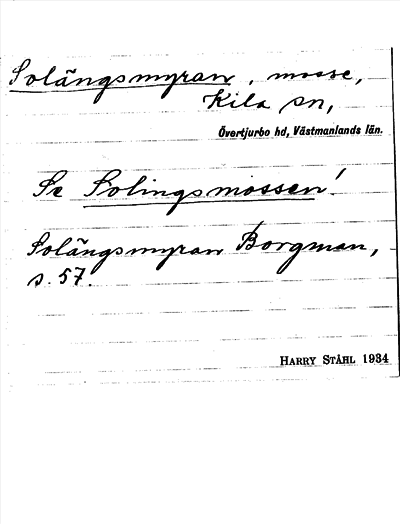 Solängsmyran, mosse,
Kila sn,
Övertjurbo hd, Västmanlands län.
Se Solingsmossen!
Solängsmyran Borgman,
s. 57.
HARRY STÅHL 1934